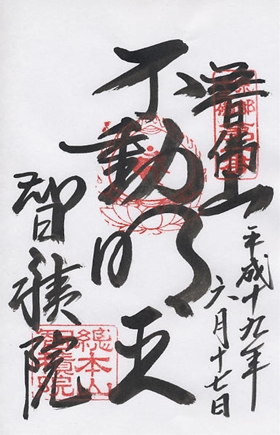 五百佛山
平成十九年
六月十七日
不動明王
智積院
總本山
智積院